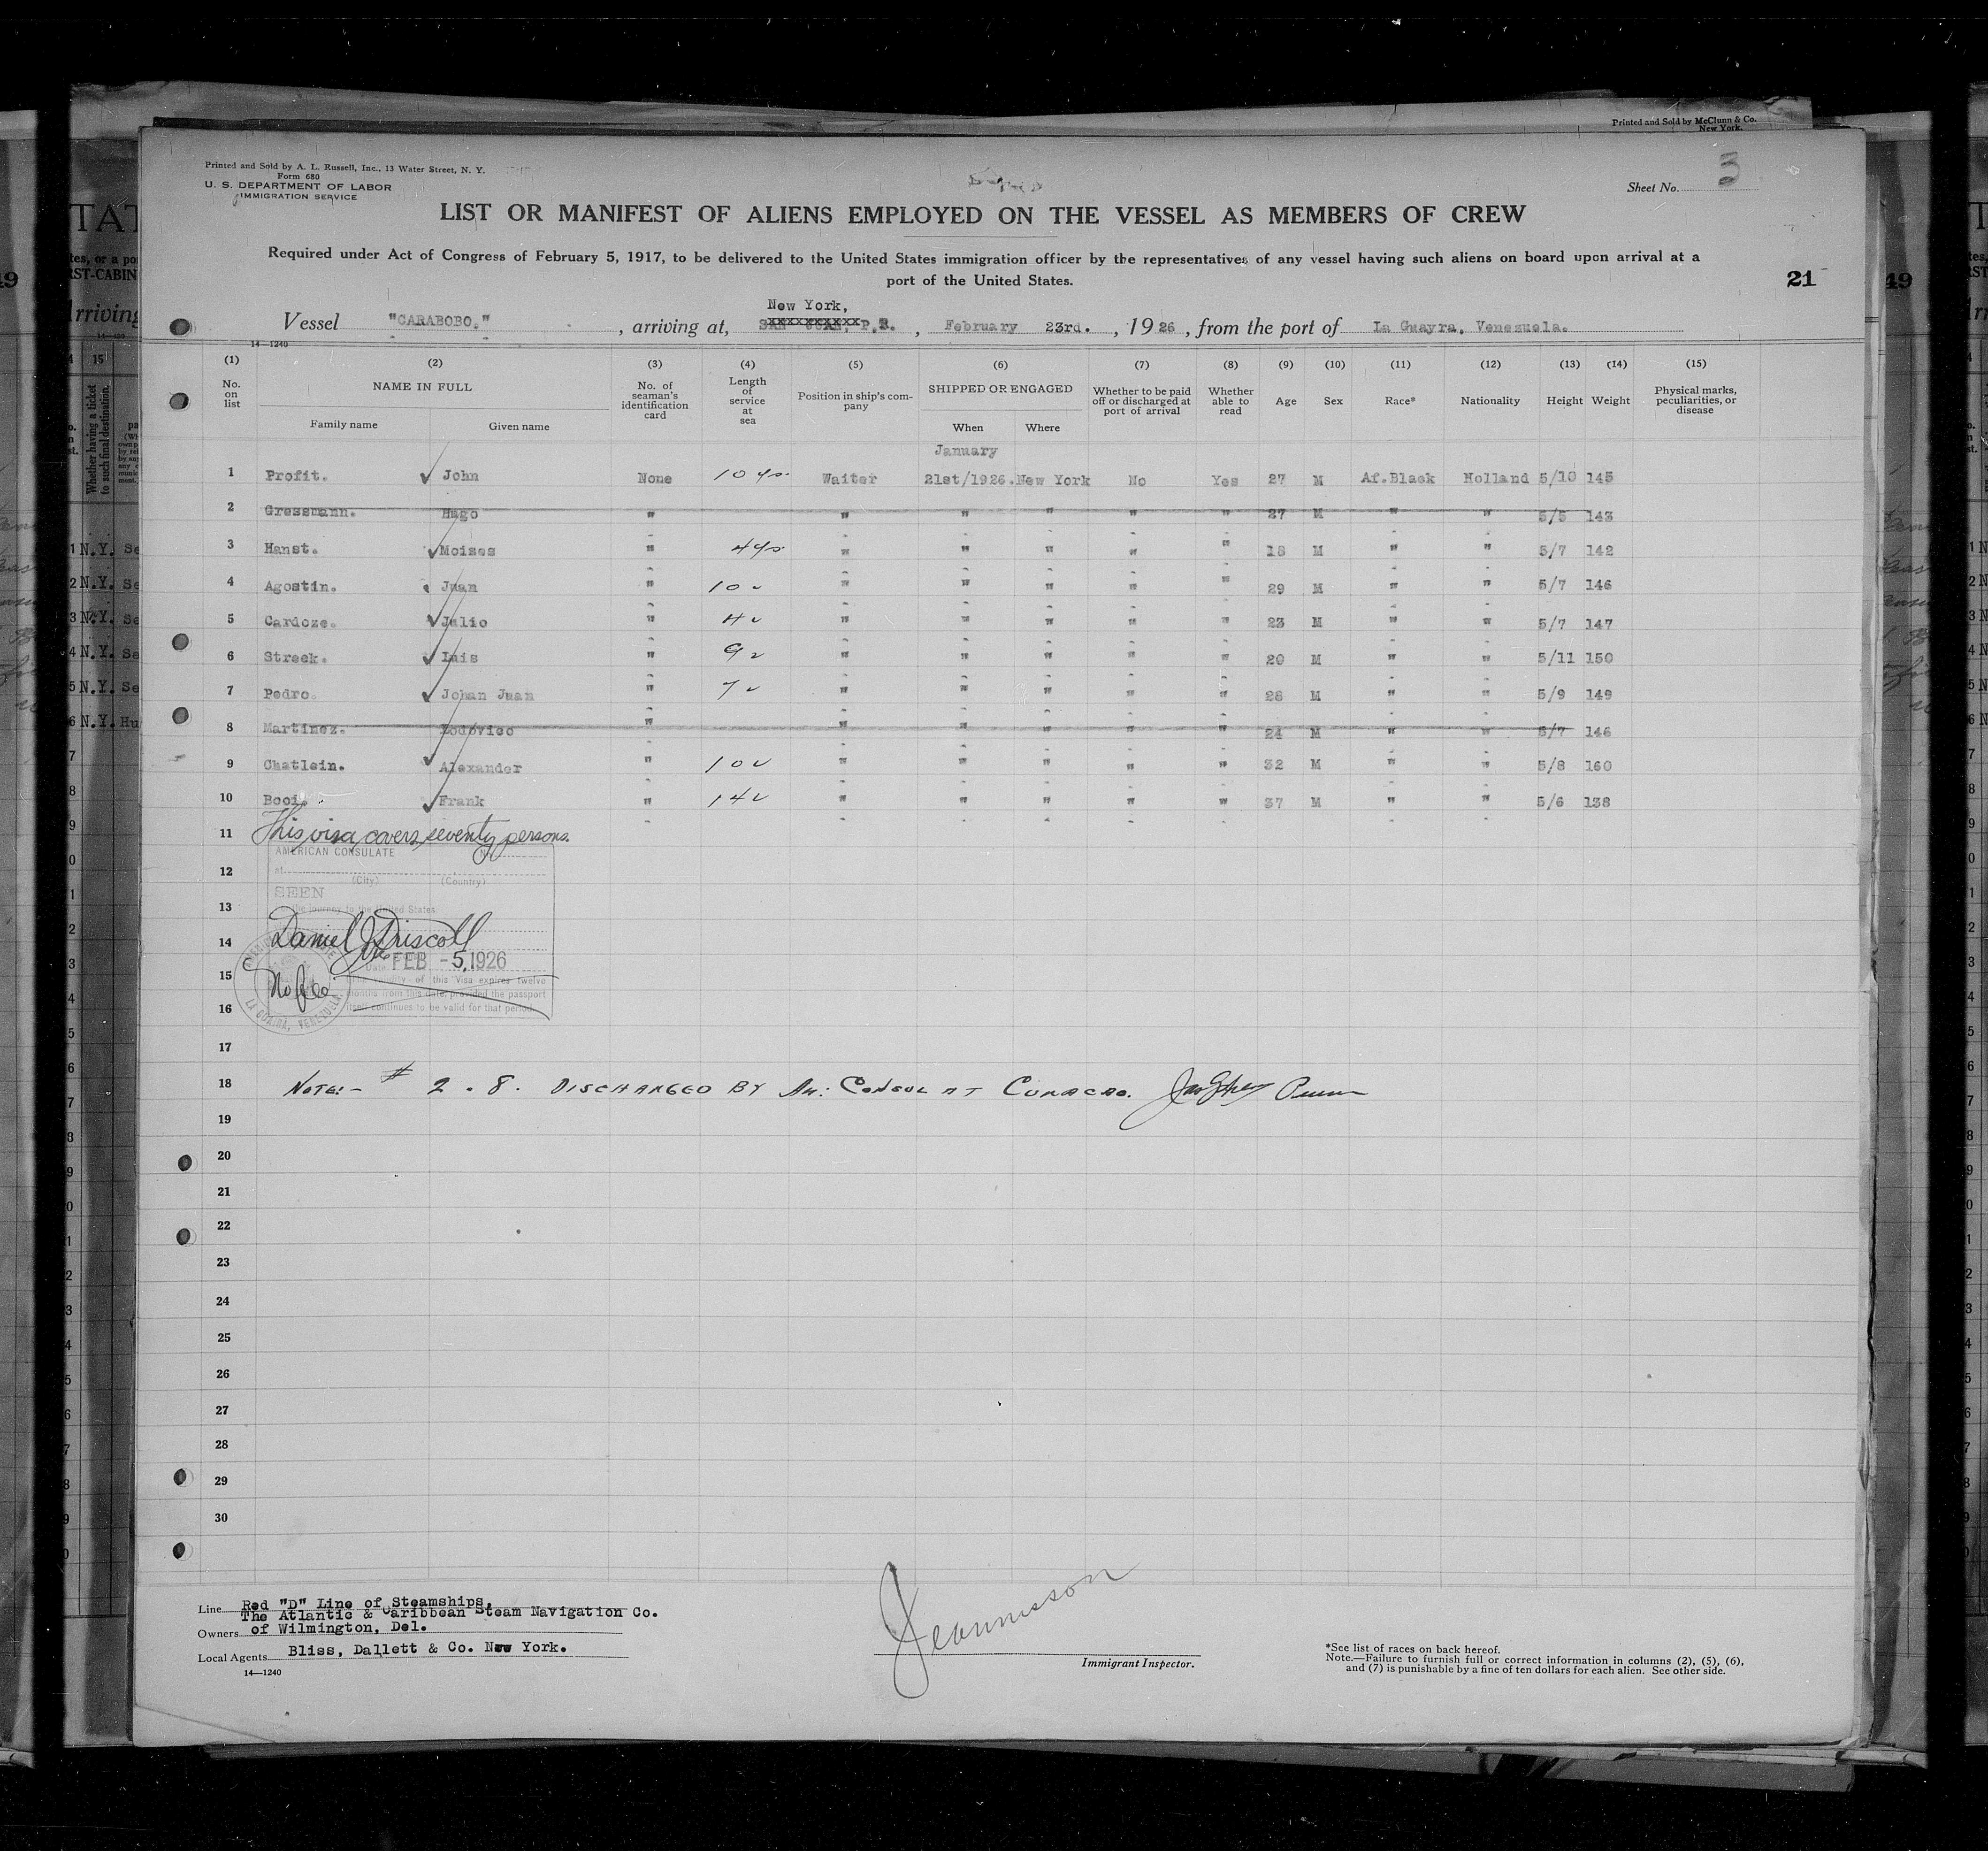 Printed and Sold by McClunn & Co.
New York.
Printed and Sold by A. L. Russell, Inc., 13 Water Street, N. Y.
Form 680
U. S. DEPARTMENT OF LABOR
IMMIGRATION SERVICE
Sheet No. 3
LIST OR MANIFEST OF ALIENS EMPLOYED ON THE VESSEL AS MEMBERS OF CREW
Required under Act of Congress of February 5, 1917, to be delivered to the United States immigration officer by the representatives of any vessel having such aliens on board upon arrival at a
port of the United States.
21
New York,
Vessel "CARABOBO." , arriving at, SAN JUAN, P.R. , February 23rd. , 1926 , from the port of La Guayra, Venezuela.
14—1240
(1) (2) (3) (4) (5) (6) (7) (8) (9) (10) (11) (12) (13) (14) (15)
No. on list NAME IN FULL Family name Given name No. of seaman's identification card Length of service at sea Position in ship's company SHIPPED OR ENGAGED When Where Whether to be paid off or discharged at port of arrival Whether able to read Age Sex Race* Nationality Height Weight Physical marks, peculiarities, or disease
January
1 Profit. John None 10 ys. Waiter 21st/1926. New York No Yes 27 M Af.Black Holland 5/10 145
2 Gressmann. Hugo " " " " " " 27 M " " 5/5 143
3 Hanst. Moises " 4 ys. " " " " " 18 M " " 5/7 142
4 Agostin. Juan " 10 " " " " " " 29 M " " 5/7 146
5 Cardoze. Julio " 4 " " " " " " 23 M " " 5/7 147
6 Streek. Luis " 9 " " " " " " 20 M " " 5/11 150
7 Pedro. Johan Juan " 7 " " " " " " 28 M " " 5/9 149
8 Martinez. Lodovico " " " " " " 24 M " " 5/7 146
9 Chatlein. Alexander " 10 " " " " " " 32 M " " 5/8 160
10 Booi. Frank " 14 " " " " " " 37 M " " 5/6 138
11 This visa covers seventy persons.
AMERICAN CONSULATE
12
at
(City) (Country)
SEEN
13
the journey to the United States
14 Daniel J Driscoll
Date FEB -5, 1926
15 The validity of this Visa expires twelve
No fee months from this date, provided the passport
16 itself continues to be valid for that period.
LA GUAIRA, VENEZUELA
17
18 NOTE:- # 2 - 8. DISCHARGED BY AM: CONSUL AT CURACAO.
19
20
21
22
23
24
25
26
27
28
29
30
Line Red "D" Line of Steamships,
The Atlantic & Caribbean Steam Navigation Co.
Owners of Wilmington, Del.
Local Agents Bliss, Dallett & Co. New York.
14—1240
Immigrant Inspector.
*See list of races on back hereof.
Note.—Failure to furnish full or correct information in columns (2), (5), (6),
and (7) is punishable by a fine of ten dollars for each alien. See other side.